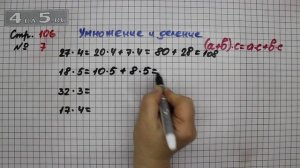 4 а 5.
Стр. 106 Умножение и деление
№ 7 (а+в)·с=а·с+в·с
27·4= 20·4+7·4= 80+28=108
18·5= 10·5+8·5=
32·3=
17·4=